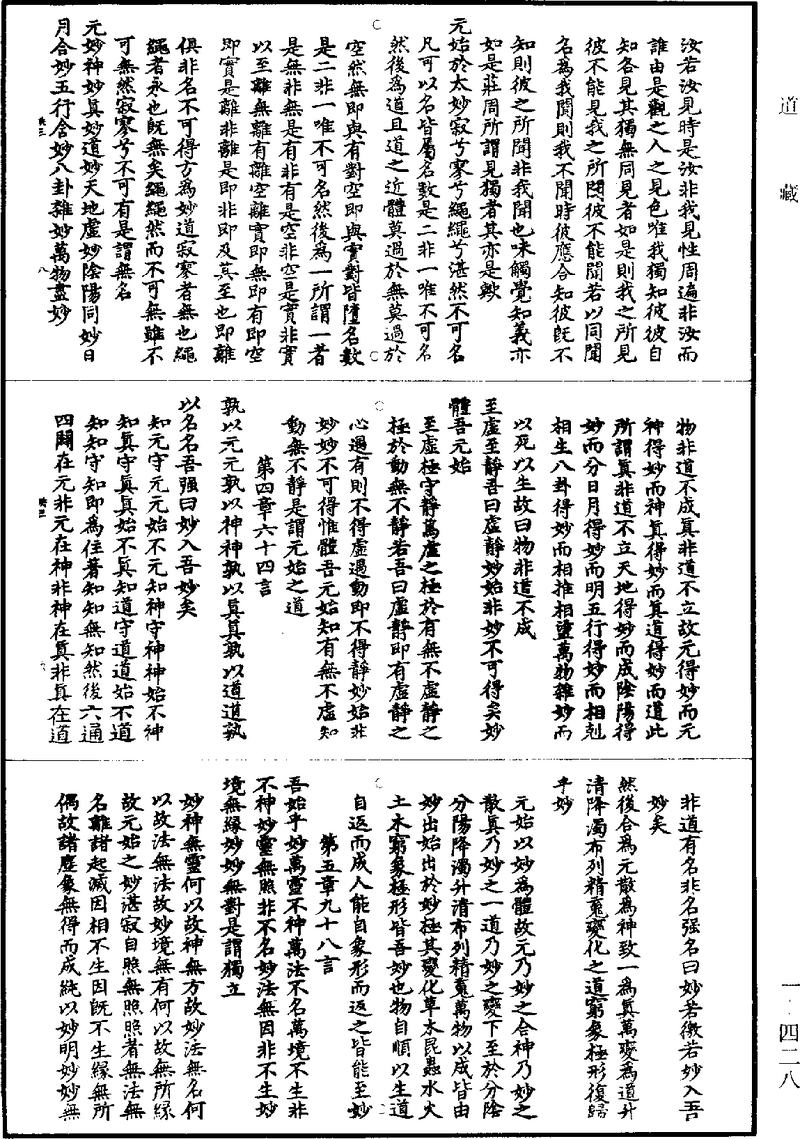 道藏
汝若汝見時是汝非我見性周遍非汝而
誰由是觀之人之見色唯我獨知彼彼自
知各見其獨無同見者如是則我之所見
彼不能見我之所聞彼不能聞若以同聞
名為我聞則我不聞時彼應合知彼既不
知則彼之所聞非我聞也味觸覺知義亦
如是莊周所謂見獨者其亦是歟
元始於太妙寂兮寥兮繩繩兮湛然不可名
凡可以名皆屬名數是二非一唯不可名
然後為道且道之近體莫過於無莫過於
空然無即與有對空即與實對皆墮名數
是二非一唯不可名然後為一所謂一者
是無非無是有非有是空非空是實非實
以至離無離有離空離實即無即有即空
即實是離非離是即非即及其至也即離
俱非名不可得方為妙道寂寥者無也繩
繩者永也既無矣繩繩然而不可無雖不
可無然寂寥兮不可有是謂無名
元妙神妙真妙道妙天地虛妙陰陽同妙日
月合妙五行含妙八卦雜妙萬物盡妙
物非道不成真非道不立故元得妙而元
神得妙而神真得妙而真道得妙而道此
所謂真非道不立天地得妙而成陰陽得
妙而分日月得妙而明五行得妙而相剋
相生八卦得妙而相推相盪萬物雜妙而
以死以生故曰物非道不成
至虛至靜吾曰虛靜妙始非妙不可得矣妙
體吾元始
至虛極守靜篤虛之極於有無不虛靜之
極於動無不靜若吾曰虛靜即有虛靜之
心遇有則不得虛遇動即不得靜妙始非
妙妙不可得惟體吾元始知有無不虛知
動無不靜是謂元始之道
第四章六十四言
孰以元元孰以神神孰以真真孰以道道孰
以名名吾强曰妙入吾妙矣
知元守元元始不元知神守神神始不神
知真守真真始不真知道守道道始不道
知知守知即為住著知知無知然後六通
四闢在元非元在神非神在真非真在道
非道有名非名强名曰妙若徼若妙入吾
妙矣
然後合為元散為神致一為真萬變為道升
清降濁布列精魂變化之道窮象極形復歸
乎妙
元始以妙為體故元乃妙之合神乃妙之
散真乃妙之一道乃妙之變下至於分陰
分陽降濁升清布列精魂萬物以成皆由
妙出始出於妙極其變化草木昆蟲水火
土木窮象極形皆吾妙也物自順以生道
自返而成人能自象形而返之皆能至妙
第五章九十八言
吾始乎妙萬靈不神萬法不名萬境不生非
不神妙靈無照非不名妙法無因非不生妙
境無緣妙妙無對是謂獨立
妙神無靈何以故神無方故妙法無名何
以故法無法故妙境無有何以故無所緣
故元始之妙湛寂自照無照照者無法無
名離諸起滅因相不生因既不生緣無所
偶故諸塵象無得而成純以妙明妙妙無
一·四二八